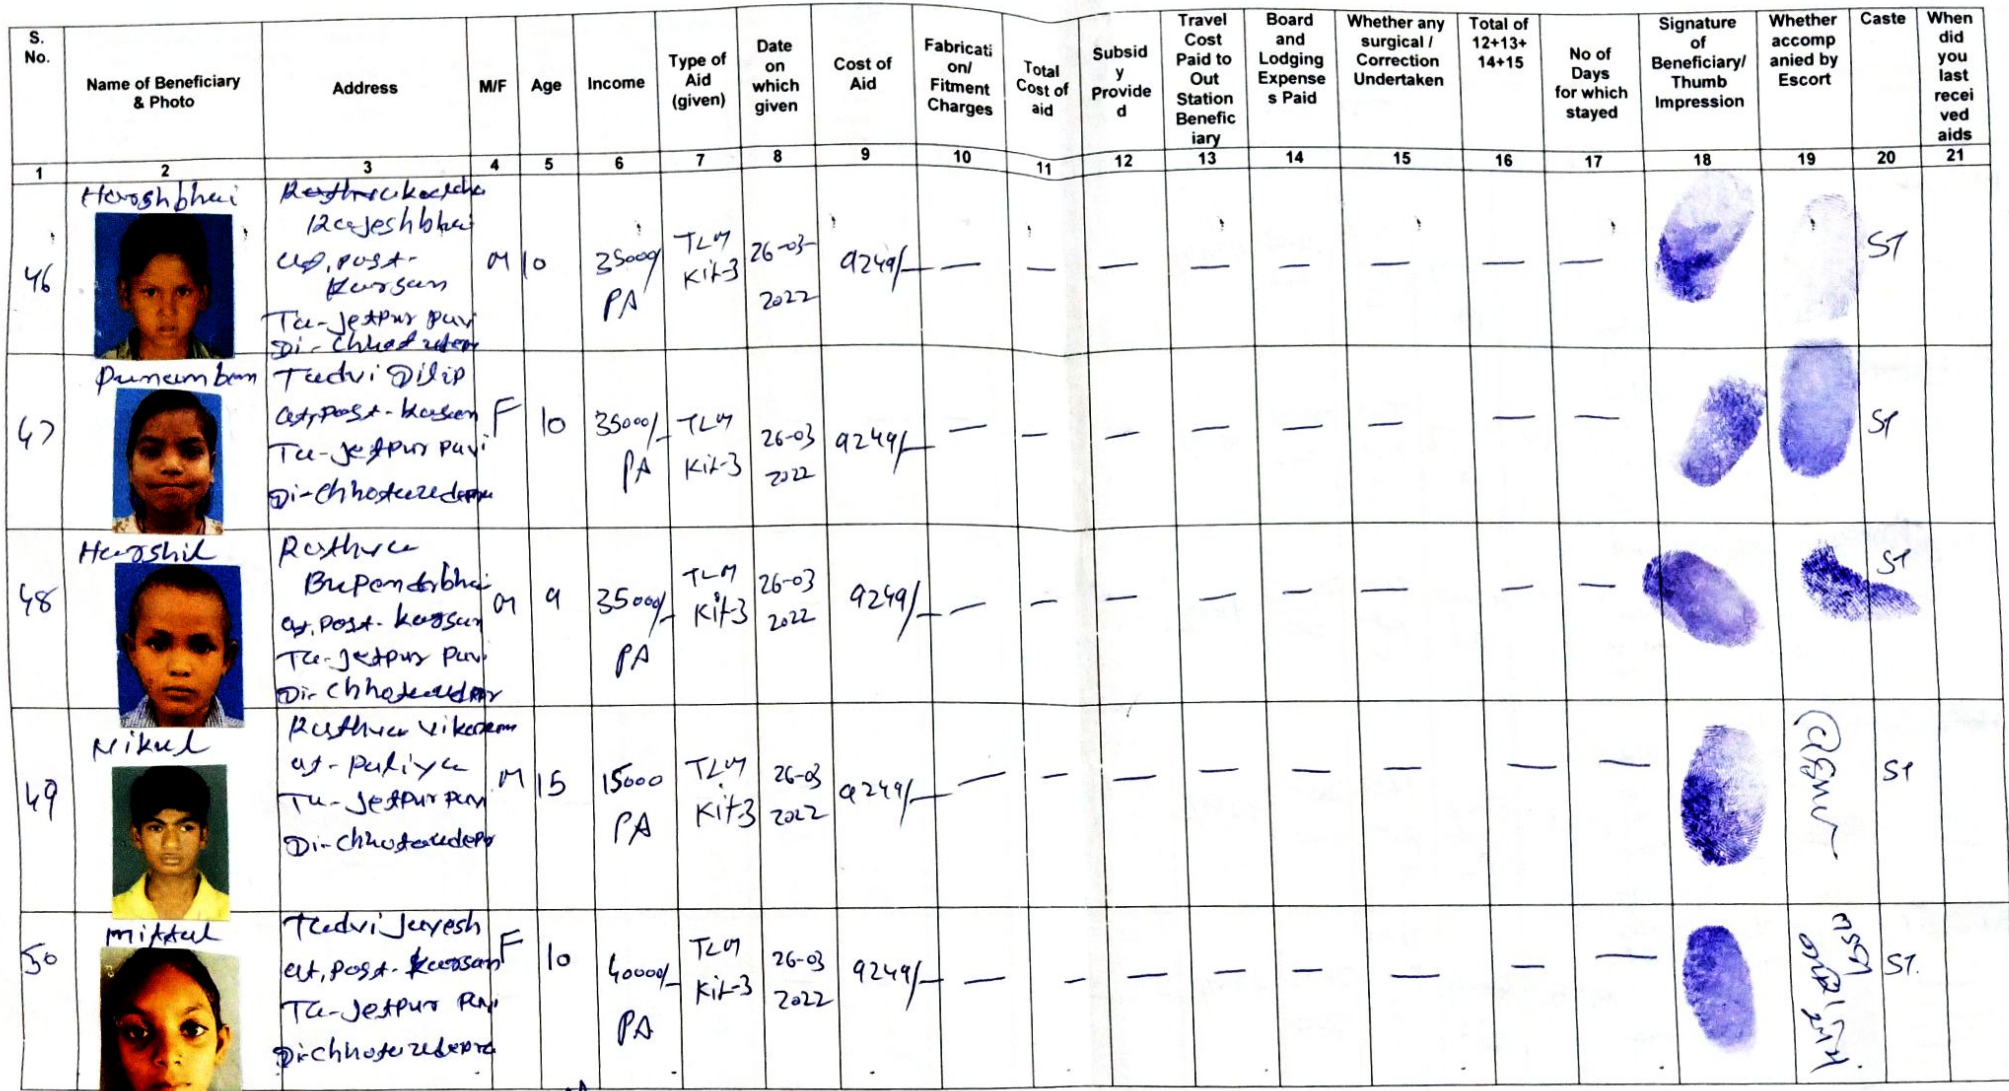 S. No.
Name of Beneficiary & Photo
Address
M/F
Age
Income
Type of Aid (given)
Date on which given
Cost of Aid
Fabricati on/ Fitment Charges
Total Cost of aid
Subsid y Provide d
Travel Cost Paid to Out Station Benefic iary
Board and Lodging Expense s Paid
Whether any surgical / Correction Undertaken
Total of 12+13+ 14+15
No of Days for which stayed
Signature of Beneficiary/ Thumb Impression
Whether accomp anied by Escort
Caste
When did you last recei ved aids
1 2 3 4 5 6 7 8 9 10 11 12 13 14 15 16 17 18 19 20 21
46
Harshbhai
Rajeshbhai
at, post-
Karsan
Ta-Jetpur pavi
Di-
M 10
35000/
PA
TLM
Kit-3
26-03-
2022
9249/-
— — — — — — — —
ST
47
Punamben
Tadvi Dilip
at, post-
Ta-Jetpur pavi
Di-
F 10
35000/-
PA
TLM
Kit-3
26-03
2022
9249/-
— — — — — — — —
ST
48
Harshil
Rathva
at, post- karsan
Ta-Jetpur pavi
Di-
M 9
35000/-
PA
TLM
Kit-3
26-03
2022
9249/-
— — — — — — — —
ST
49
Nikul
Rathva
at- Paliya
Ta-Jetpur pavi
Di-
M 15
15000
PA
TLM
Kit-3
26-03
2022
9249/-
— — — — — — — —
ST
50
mittal
Tadvi Jayesh
at, post- karsan
Ta-Jetpur pavi
Di-
F 10
40000/-
PA
TLM
Kit-3
26-03
2022
9249/-
— — — — — — — —
ST.